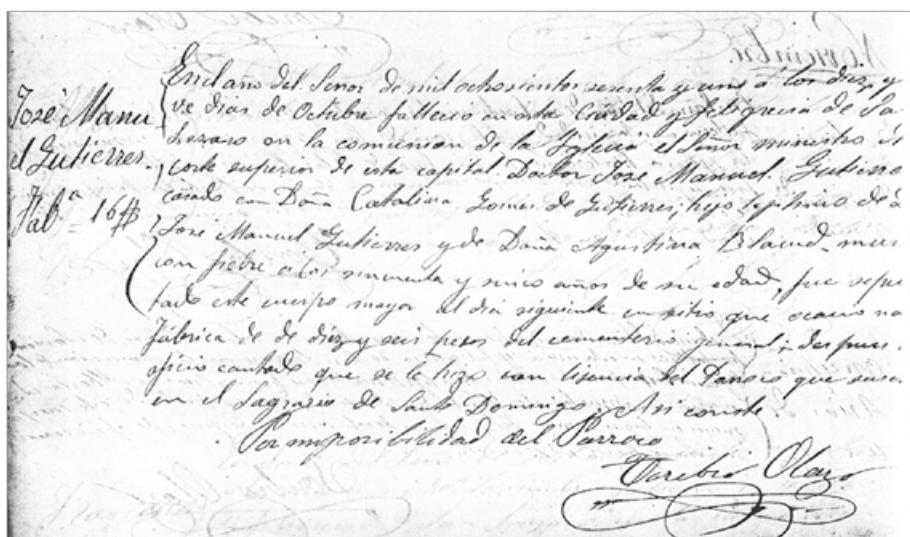 José Manu
el Gutierres.
Fab.ª = 16 #
En el año del Señor de mil ochosientos sesenta y uno a los diez y
ve dias de Octubre fallecio en esta Ciudad y feligrecia de Sa
Lazaro en la comunion de la Yglecia el Señor ministro de
corte superior de esta capital Doctor José Manuel Gutierre
casado con Doña Catalina Gomes de Gutierres, hijo lejitimo de
José Manuel Gutierres y de Doña Agustina mur
con fiebre a los sincuenta y sinco años de su edad, fue sepu
tado este cuerpo mayor al dia siguiente en sitio que
fábrica de de diez y seis pesos del cementerio general; despues
oficio cantado que se le hizo con lisencia del Parroco que susc
en el Sagrario de Santo Domingo, Asi conste
Por imposibilidad del Parroco
Toribio Olazo